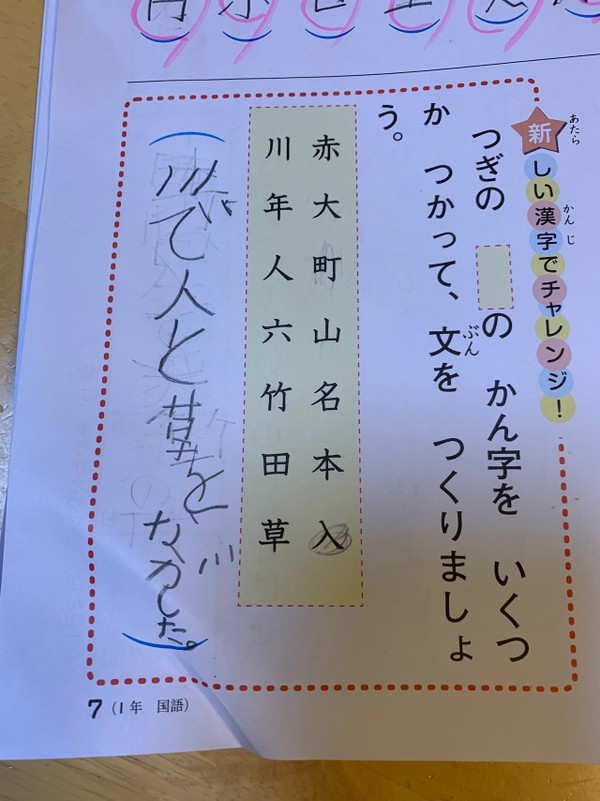 新しい漢字でチャレンジ!
つぎの の かん字を いくつ
か つかって、文を つくりましょ
う。
赤 大 町 山 名 本 入
川 年 人 六 竹 田 草
(川で人と草をながした。)
7(1年 国語)